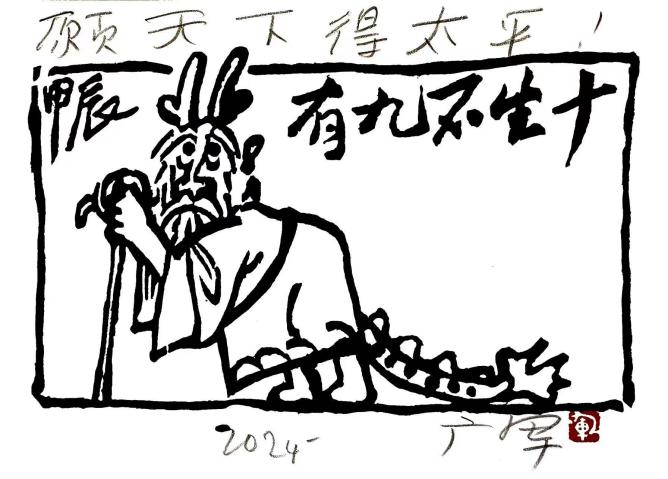 愿天下得太平!
甲辰 有九不生十
2024 广军
軍